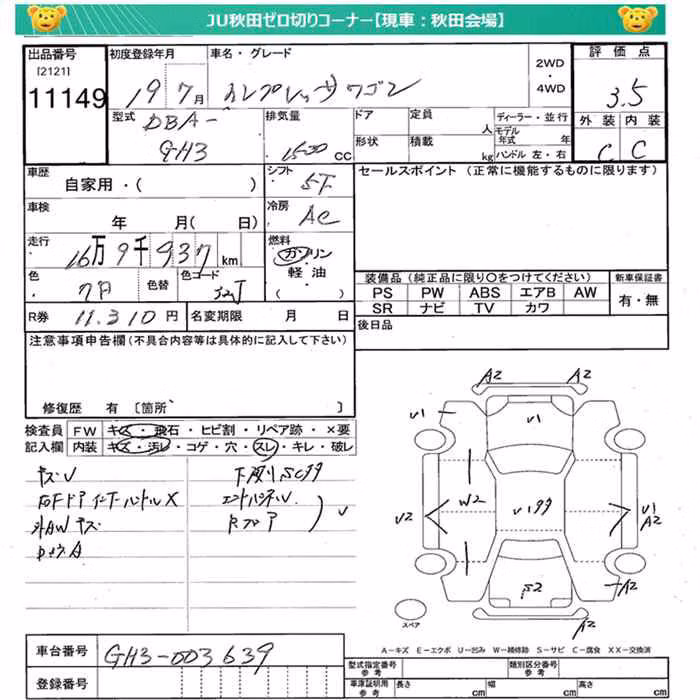 JU秋田ゼロ切りコーナー【現車：秋田会場】
出品番号 初度登録年月 車名・グレード 2WD・4WD 評価点
[2121]
11149 19 7月 インプレッサワゴン 3.5
型式 DBA- GH3 排気量 1500 cc ドア 定員 人 ディーラー・並行 外装 内装
形状 積載 kg モデル年式 年 ハンドル 左・右 C C
車歴 自家用・( ) シフト 5F セールスポイント（正常に機能するものに限ります）
車検 年 月( 日) 冷房 AC
走行 16万9千937 km 燃料 ガソリン
軽油
( )
色 色替 色コード 32J 装備品（純正品に限り○をつけてください） 新車保証書
PS PW ABS エアB AW 有・無
SR ナビ TV カワ
R券 11.310円 名変期限 月 日 後日品
注意事項申告欄(不具合内容等は具体的に記入して下さい)
修復歴 有 〔箇所 〕
検査員 FW キズ・飛石・ヒビ割・リペア跡・×要
記入欄 内装 キズ・汚レ・コゲ・穴・スレ・キレ・破レ
キズU 下廻りSC99
エンドパネルU
外AWキズ Rフロア U
A2 A2
U1 U1
W2 U199
U2 U1
A2
S2 A2
A2
スペア
A－キズ E－エクボ U－凹み W－補修跡 S－サビ C－腐食 XX－交換済
車台番号 GH3-003639
登録番号
型式指定番号 参考 類別区分番号 参考
車庫証明用 参考 長さ cm 幅 cm 高さ cm